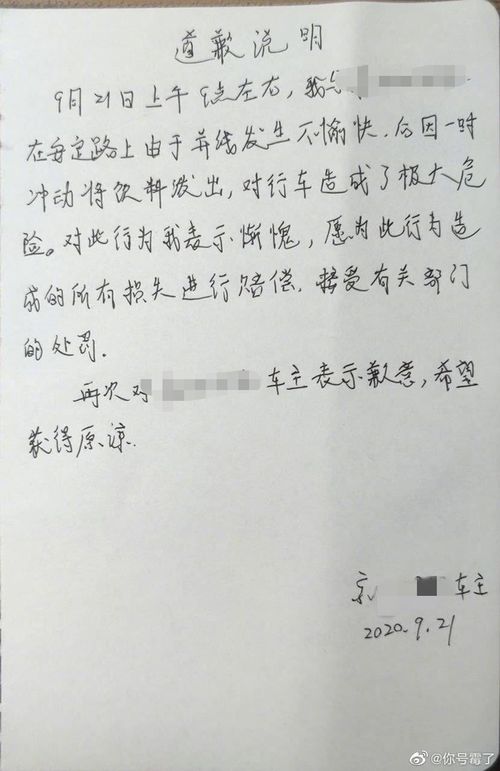 道歉说明
9月21日上午9点左右，我
在安定路上由于并线发生不愉快.后因一时
冲动将饮料泼出，对行车造成了极大危
险。对此行为我表示惭愧，愿为此行为造
成的所有损失进行赔偿.接受有关部门
的处罚.
再次对 车主表示歉意，希望
获得原谅.
京 车主
2020.9.21
@你号霉了